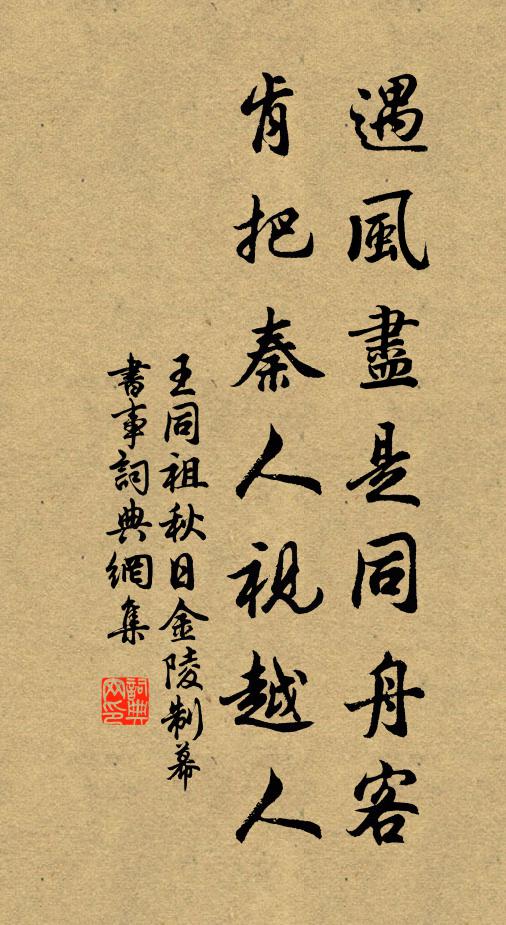 遇風盡是同舟客
肯把秦人視越人
王同祖秋日金陵制幕
書事詞典網集
詞典網印